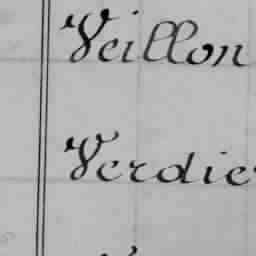 Veillon
Verdier